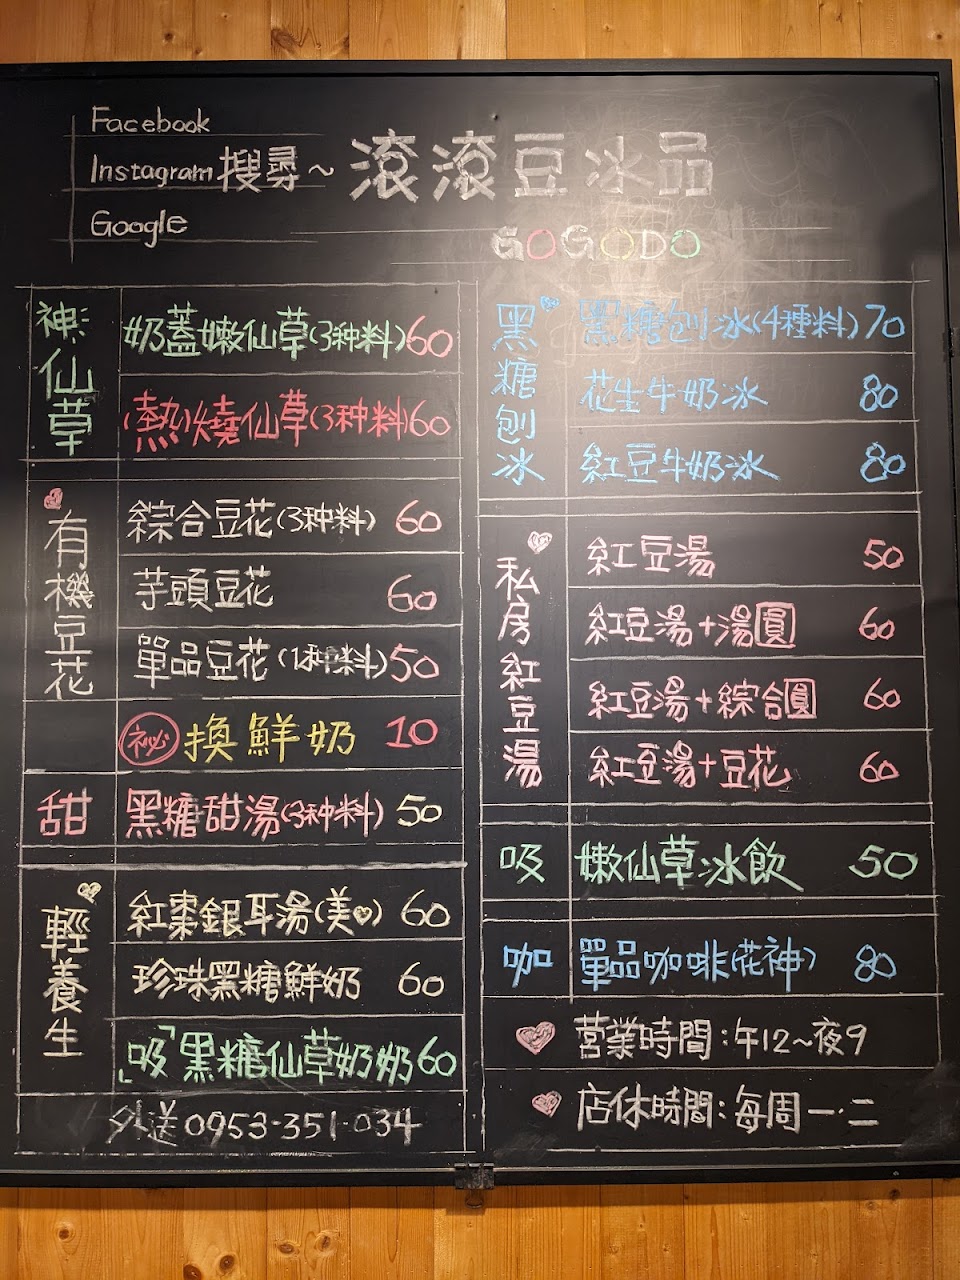 Facebook
Instagram 搜尋~
Google
滾滾豆冰品
GOGODO
神仙草
奶蓋嫩仙草(3种料)60
(熱)燒仙草(3种料)60
有機豆花
綜合豆花(3种料) 60
芋頭豆花 60
單品豆花(1种料)50
祕 換鮮奶 10
甜
黑糖甜湯(3种料) 50
輕養生
紅棗銀耳湯(美♡) 60
珍珠黑糖鮮奶 60
「吸」黑糖仙草奶奶60
外送0953-351-034
黑糖刨冰
黑糖刨冰(4種料)70
花生牛奶冰 80
紅豆牛奶冰 80
私房紅豆湯
紅豆湯 50
紅豆湯+湯圓 60
紅豆湯+綜合圓 60
紅豆湯+豆花 60
吸
嫩仙草冰飲 50
咖
單品咖啡(花神) 80
營業時間:午12~夜9
店休時間:每周一.二